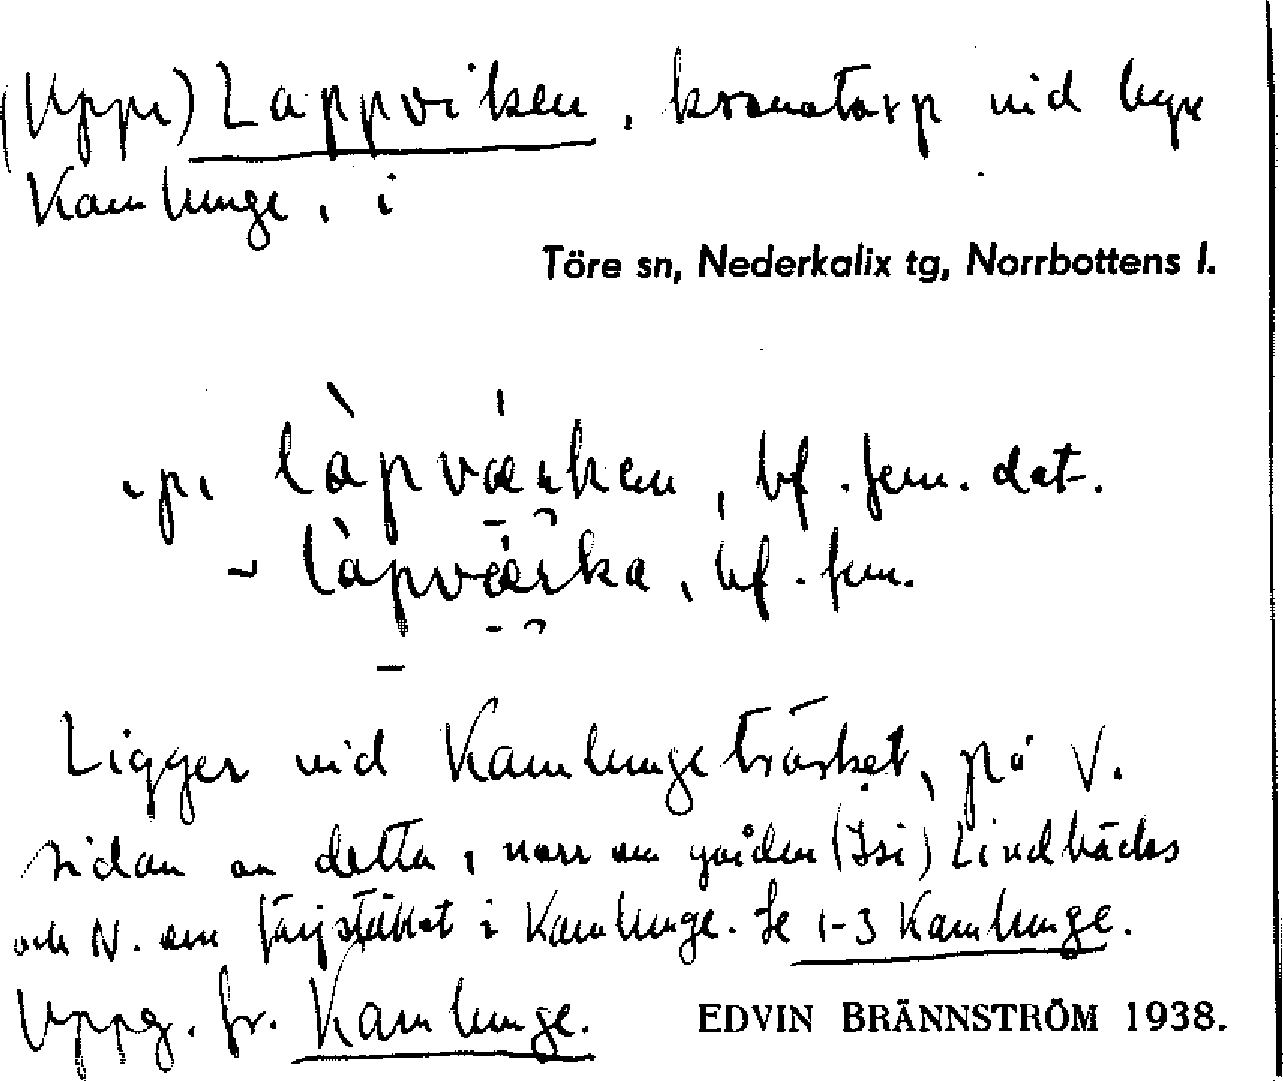 (Uppe) Lappviken, kronotorp vid byn
Kamlunge, i
Töre sn, Nederkalix tg, Norrbottens l.
i, pi, làpvǽrken, bf. fem. dat.
~ làpvǽrka, bf. fem.
Ligger vid Kamlungeträsket, på V.
sidan om detta, norr om gården (Isi) Lindbäcks
och N. om färjstället i Kamlunge. Se 1-3 Kamlunge.
Uppg. fr. Kamlunge. EDVIN BRÄNNSTRÖM 1938.